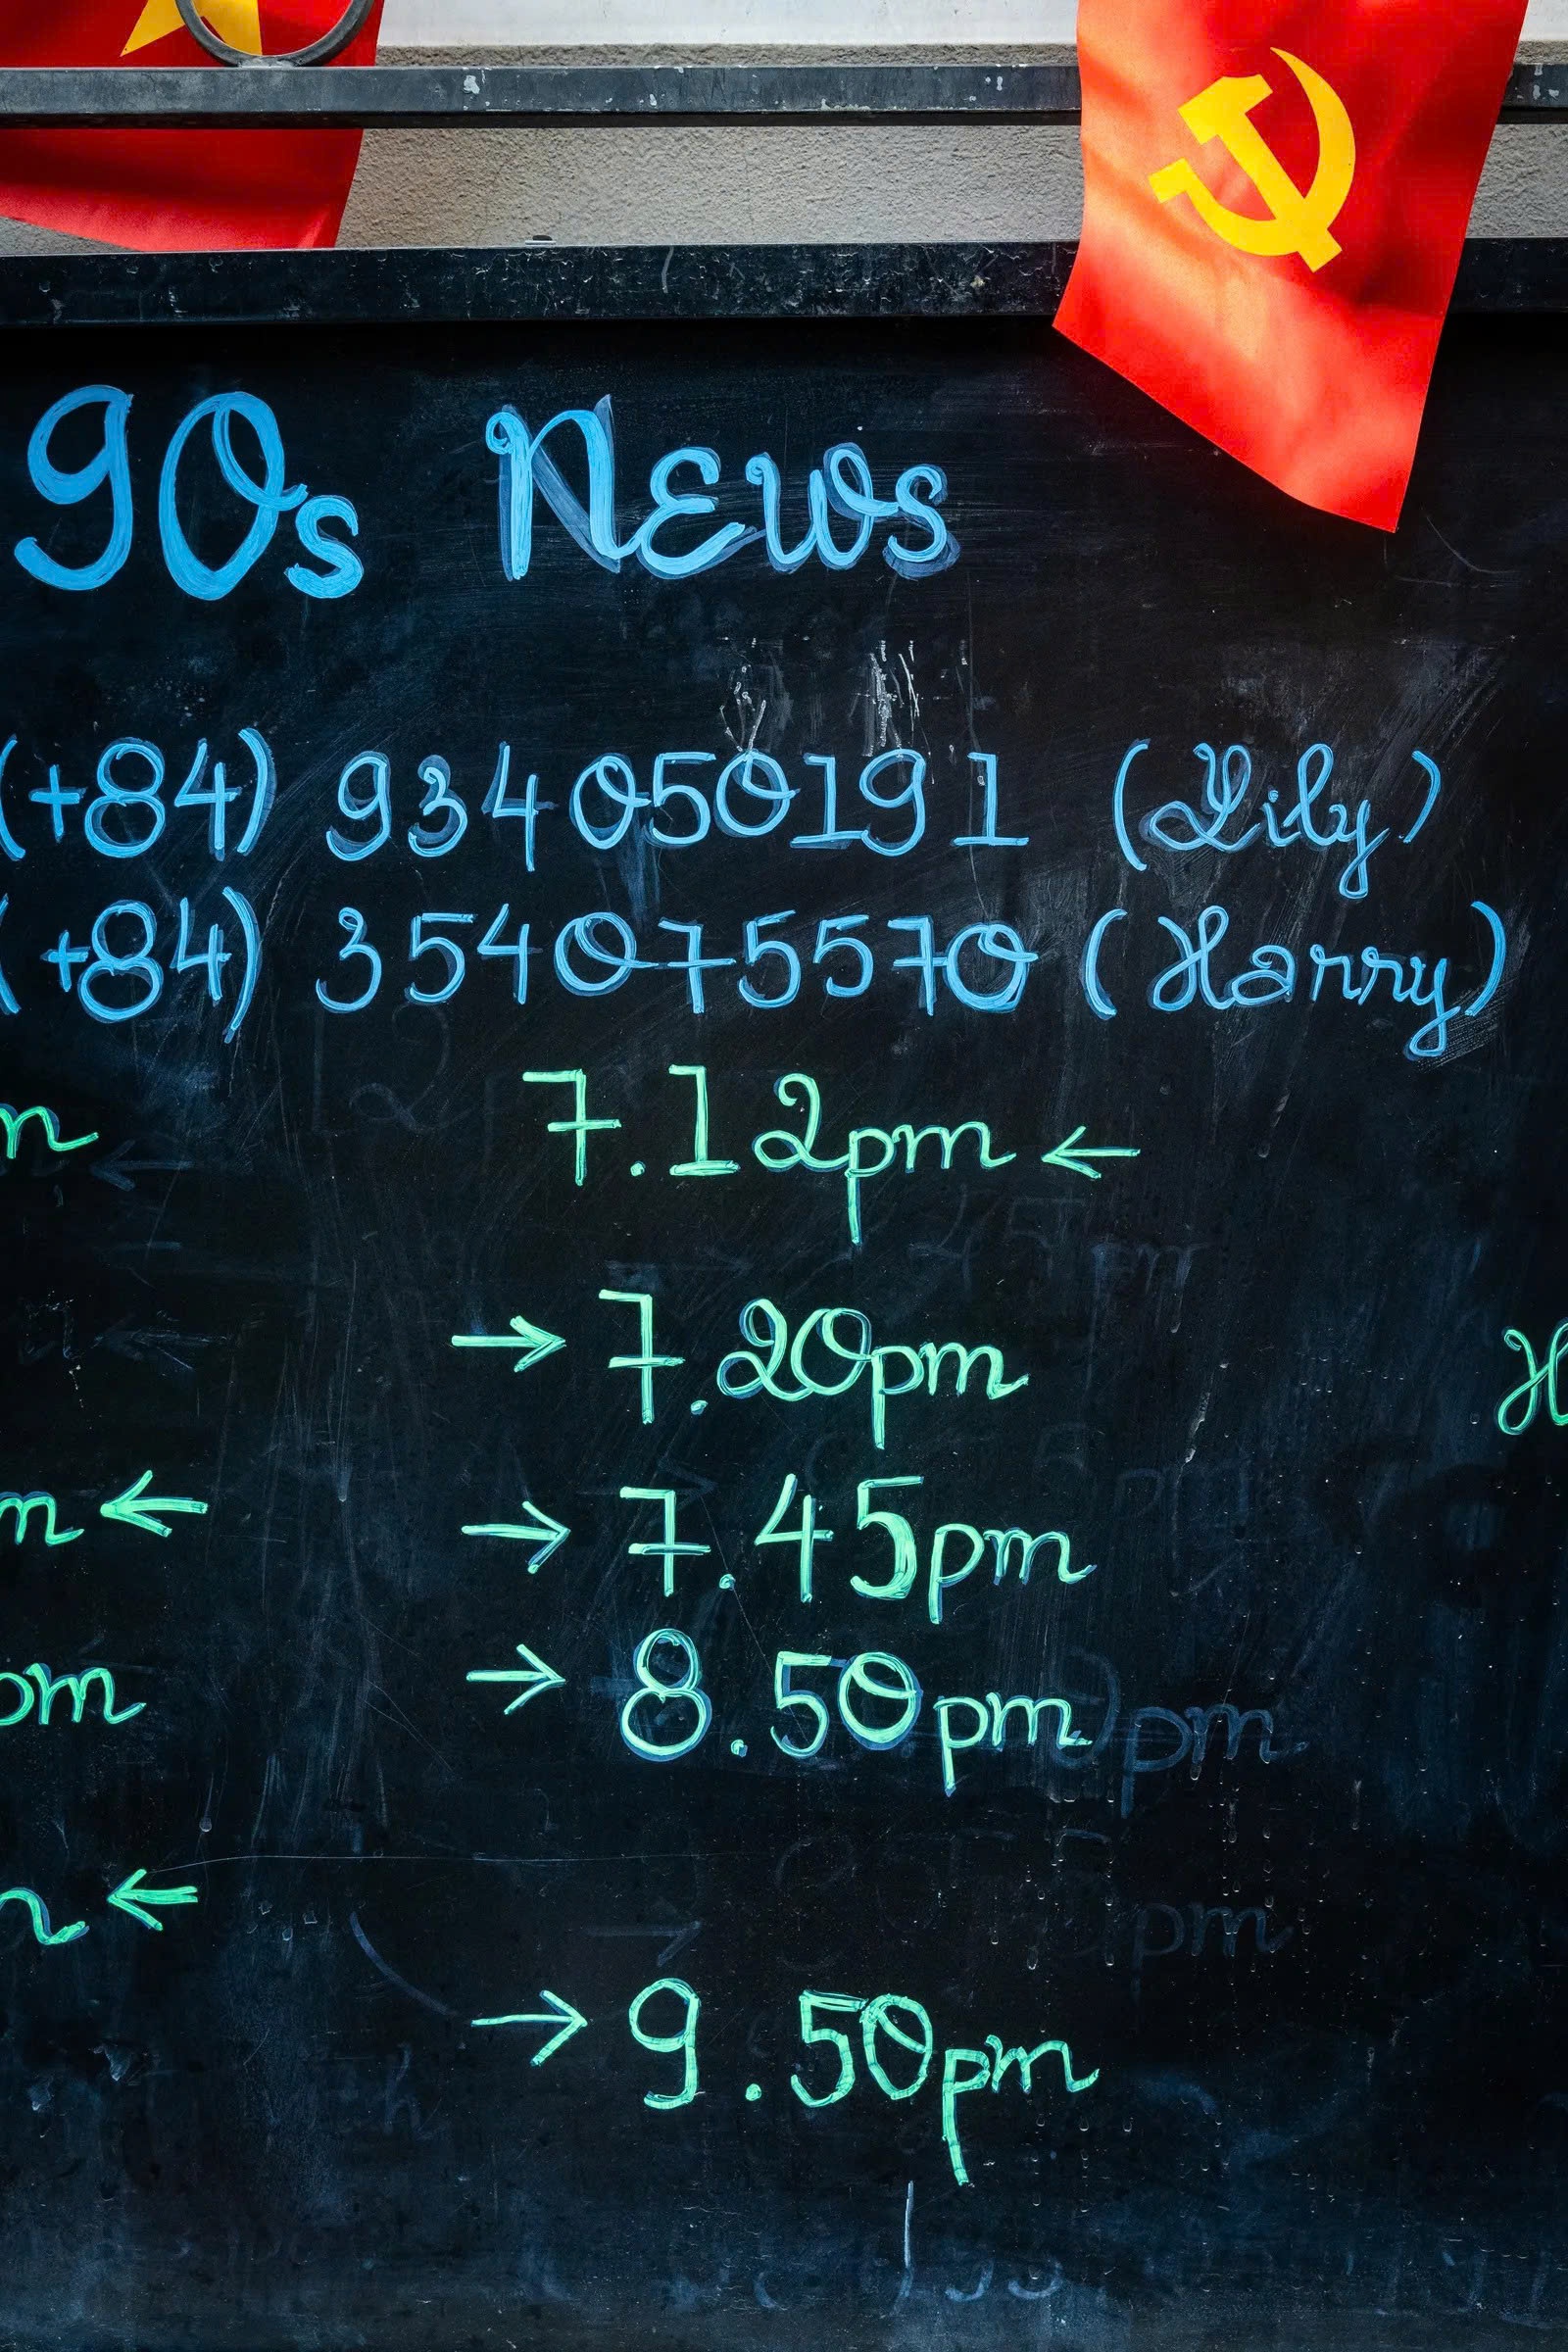 90s News
(+84) 934050191 (Lily)
(+84) 354075570 (Harry)
7.12pm ←
→ 7.20pm
→ 7.45pm
→ 8.50pm
→ 9.50pm